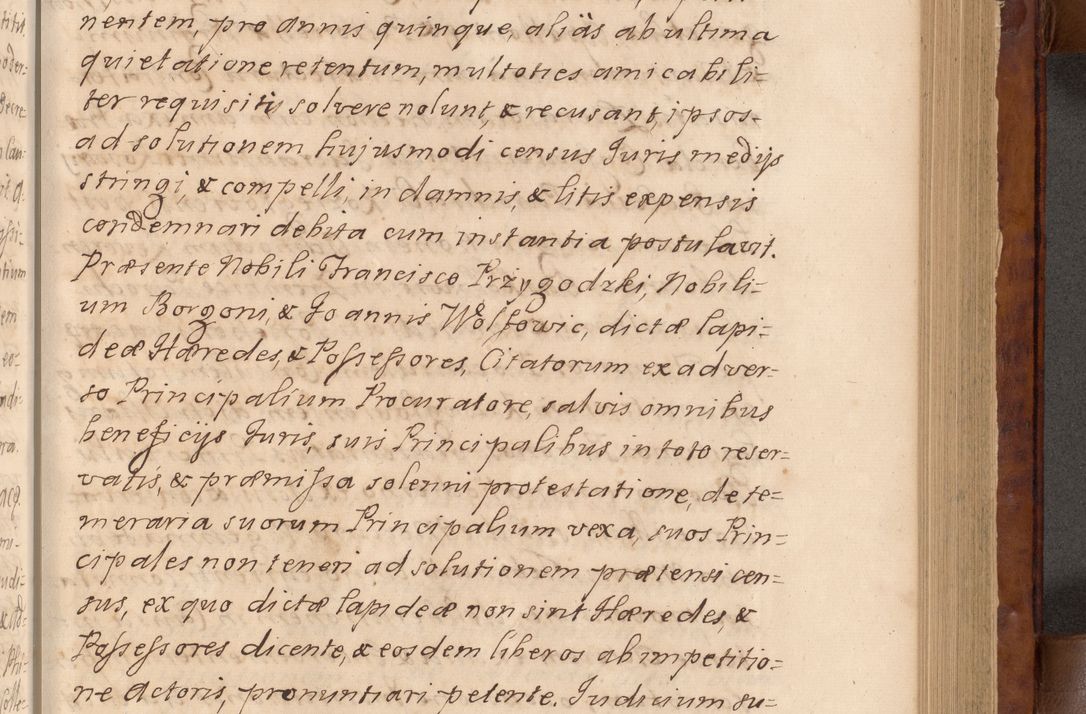 nentem, pro annis quinque, aliàs ab ultima
quietatione retentum, multoties amicabili=
ter requisiti solvere nolunt, & recusant, ipsos-
ad solutionem hujusmodi census Juris medijs
stringi, & compelli, in damnis, & litis expensis
condemnari debita cum instantia postulavit.
Præsente Nobili Francisco Przygodzki, Nobili=
um Borgoni, & Joannis Wolffowic, dictæ lapi=
deæ Hæredes, & Possessores, Citatorum ex adver-
so Principalium Procuratore, salvis omnibus
beneficijs Juris, suis Principalibus in toto reser=
vatis, & præmissa solenni protestatione, de te=
meraria suorum Principalium vexa, suos Prin=
cipales non teneri ad solutionem prætensi cen=
sus, ex quo dictæ lapideæ non sint Hæredes, &
Possessores dicente, & eosdem liberos ab impetitio=
ne Actoris, pronuntiari petente. Judicium su=